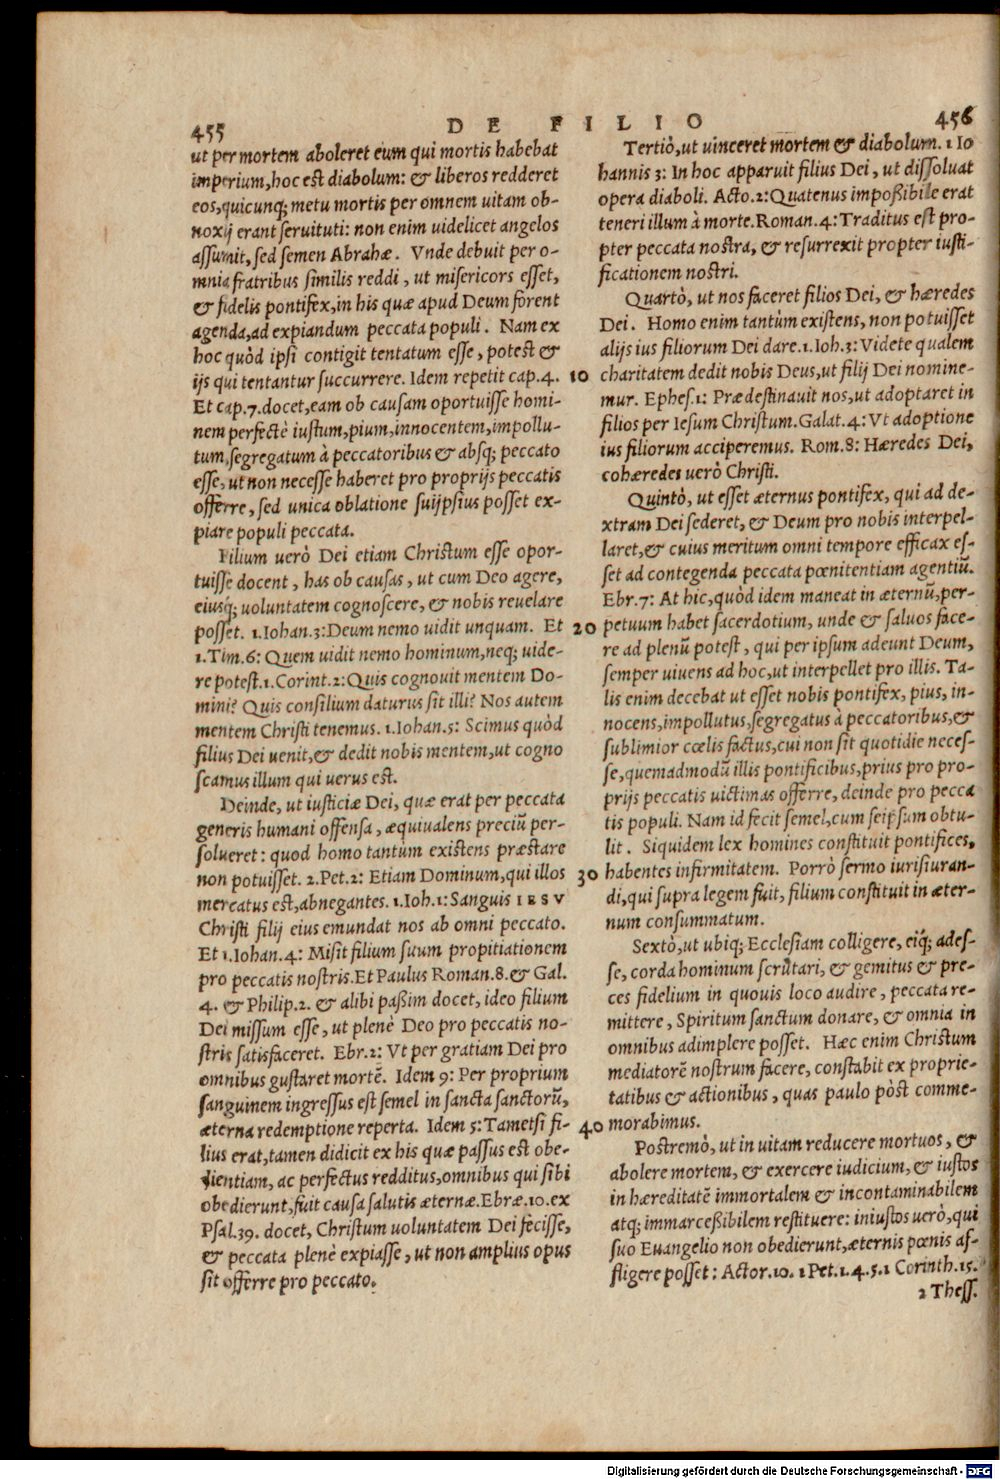 455
DE FILIO
456
ut per mortem aboleret eum qui mortis habebat
imperium, hoc est diabolum: & liberos redderet
eos, quicunq; metu mortis per omnem uitam ob-
noxij erant seruituti: non enim uidelicet angelos
assumit, sed semen Abrahæ. Vnde debuit per o-
mnia fratribus similis reddi, ut misericors esset,
& fidelis pontifex, in his quæ apud Deum forent
agenda, ad expiandum peccata populi. Nam ex
hoc quòd ipsi contigit tentatum esse, potest &
ijs qui tentantur succurrere. Idem repetit cap. 4.
Et cap. 7. docet, eam ob causam oportuisse homi-
nem perfectè iustum, pium, innocentem, impollu-
tum, segregatum à peccatoribus & absq; peccato
esse, ut non necesse haberet pro proprijs peccatis
offerre, sed unica oblatione suijpsius posset ex-
piare populi peccata.
Filium uerò Dei etiam Christum esse opor-
tuisse docent, has ob causas, ut cum Deo agere,
eiusq́; uoluntatem cognoscere, & nobis reuelare
posset. 1. Iohan. 3: Deum nemo uidit unquam. Et
1. Tim. 6: Quem uidit nemo hominum, neq; uide-
re potest. 1. Corint. 2: Quis cognouit mentem Do-
mini? Quis consilium daturus sit illi? Nos autem
mentem Christi tenemus. 1. Iohan. 5: Scimus quòd
filius Dei uenit, & dedit nobis mentem, ut cogno
scamus illum qui uerus est.
Deinde, ut iusticiæ Dei, quæ erat per peccata
generis humani offensa, æquiualens preciũ per-
solueret: quod homo tantùm existens præstare
non potuisset. 2. Pet. 2: Etiam Dominum, qui illos
mercatus est, abnegantes. 1. Ioh. 1: Sanguis IESV
Christi filij eius emundat nos ab omni peccato.
Et 1. Iohan. 4: Misit filium suum propitiationem
pro peccatis nostris. Et Paulus Roman. 8. & Gal.
4. & Philip. 2. & alibi paßim docet, ideo filium
Dei missum esse, ut plenè Deo pro peccatis no-
stris satisfaceret. Ebr. 2: Vt per gratiam Dei pro
omnibus gustaret mortẽ. Idem 9: Per proprium
sanguinem ingressus est semel in sancta sanctorũ,
æterna redemptione reperta. Idem 5: Tametsi fi-
lius erat, tamen didicit ex his quæ passus est obe-
dientiam, ac perfectus redditus, omnibus qui sibi
obedierunt, fuit causa salutis æternæ. Ebræ. 10. ex
Psal. 39. docet, Christum uoluntatem Dei fecisse,
& peccata plenè expiasse, ut non amplius opus
sit offerre pro peccato.
10
20
30
40
Tertiò, ut uinceret mortem & diabolum. 1 Io
hannis 3: In hoc apparuit filius Dei, ut dissoluat
opera diaboli. Acto. 2: Quatenus impoßibile erat
teneri illum à morte. Roman. 4: Traditus est pro-
pter peccata nostra, & resurrexit propter iusti-
ficationem nostri.
Quartò, ut nos faceret filios Dei, & hæredes
Dei. Homo enim tantùm existens, non potuisset
alijs ius filiorum Dei dare. 1. Ioh. 3: Videte qualem
charitatem dedit nobis Deus, ut filij Dei nomine-
mur. Ephes. 1: Prædestinauit nos, ut adoptaret in
filios per Iesum Christum. Galat. 4: Vt adoptione
ius filiorum acciperemus. Rom. 8: Hæredes Dei,
cohæredes uerò Christi.
Quintò, ut esset æternus pontifex, qui ad de-
xtram Dei sederet, & Deum pro nobis interpel-
laret, & cuius meritum omni tempore efficax es-
set ad contegenda peccata pœnitentiam agentiũ.
Ebr. 7: At hic, quòd idem maneat in æternũ, per-
petuum habet sacerdotium, unde & saluos face-
re ad plenũ potest, qui per ipsum adeunt Deum,
semper uiuens ad hoc, ut interpellet pro illis. Ta-
lis enim decebat ut esset nobis pontifex, pius, in-
nocens, impollutus, segregatus à peccatoribus, &
sublimior cœlis factus, cui non sit quotidie neces-
se, quemadmodũ illis pontificibus, prius pro pro-
prijs peccatis uictimas offerre, deinde pro pecca
tis populi. Nam id fecit semel, cum seipsum obtu-
lit. Siquidem lex homines constituit pontifices,
habentes infirmitatem. Porrò sermo iurisiuran-
di, qui supra legem fuit, filium constituit in æter-
num consummatum.
Sextò, ut ubiq; Ecclesiam colligere, eiq́; ades-
se, corda hominum scrutari, & gemitus & pre-
ces fidelium in quouis loco audire, peccata re-
mittere, Spiritum sanctum donare, & omnia in
omnibus adimplere posset. Hæc enim Christum
mediatorẽ nostrum facere, constabit ex proprie-
tatibus & actionibus, quas paulo pòst comme-
morabimus.
Postremò, ut in uitam reducere mortuos, &
abolere mortem, & exercere iudicium, & iustos
in hæreditatẽ immortalem & incontaminabilem
atq; immarceßibilem restituere: iniustos uerò, qui
suo Euangelio non obedierunt, æternis pœnis af-
fligere posset: Actor. 10. 1 Pet. 1. 4. 5. 1 Corinth. 15.
2 Thess.
Digitalisierung gefördert durch die Deutsche Forschungsgemeinschaft - DFG